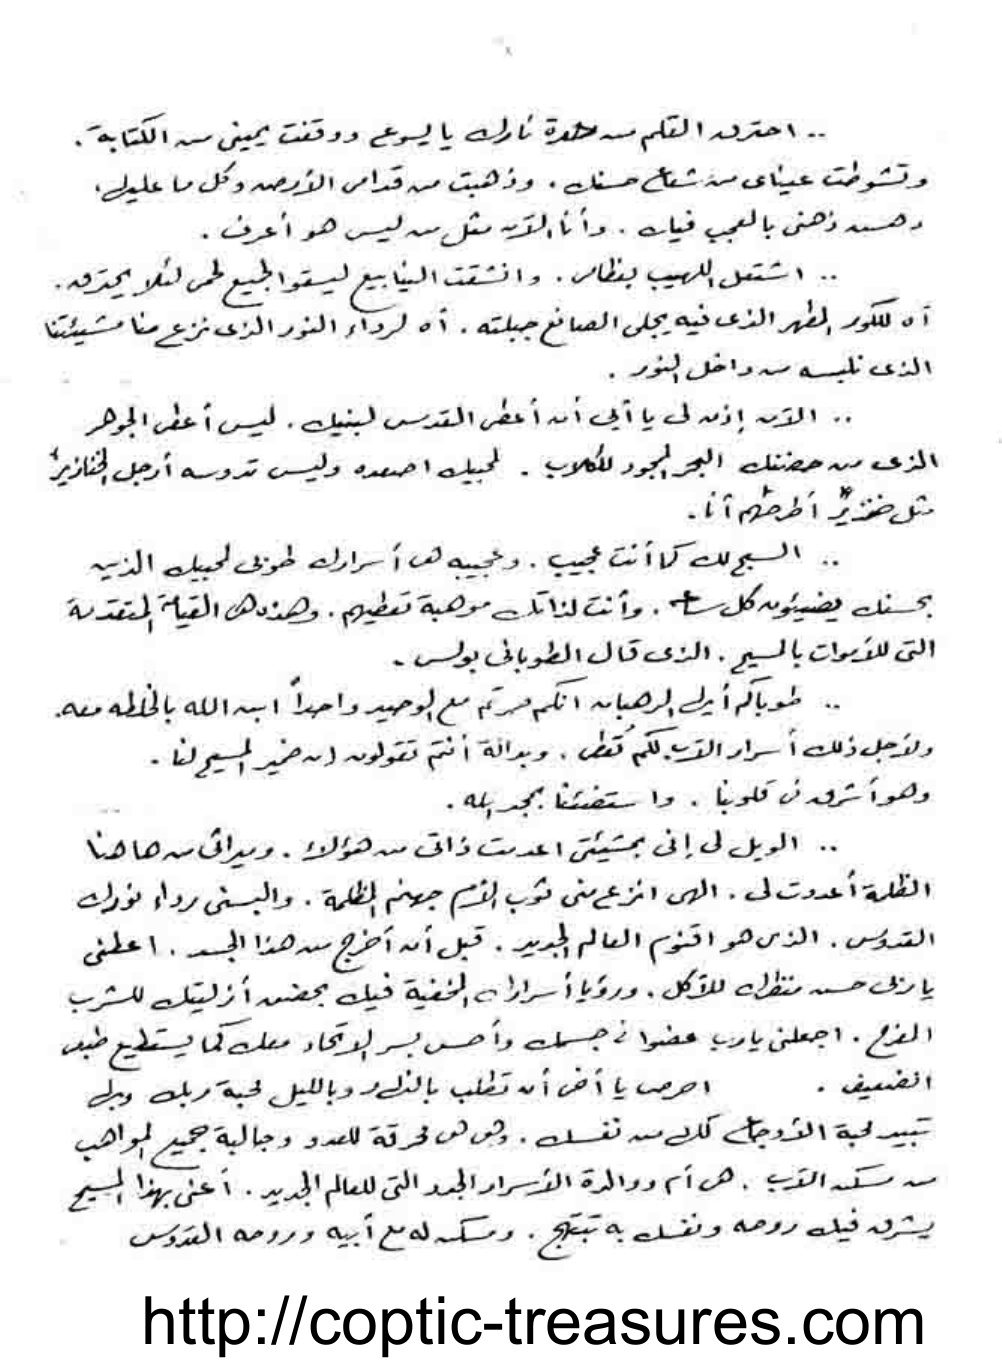 .. احترق القلم من حدة نارك يا يسوع ووقفت يميني من الكتابة .
وتشوطت عيناى من شعاع حسنك . وذهبت من قدامى الأرض وكل ما عليها،
دهـش ذهنى بالعجب فيك . وأنا الآن مثل من ليس هو أعرف .
.. اشتعل اللهيب بعظامى . وانشقت الينابيع ليسقوا الجميع لحمى لئلا يحترق .
آه للكور المطهر الذى فيه يجلى الصانع جبلته . آه لرداء النور الذى نزع منا مشيئتنا
الذى نلبسه من داخل النور .
.. الآن إذن لى يا أبى أن أعطى القدس لبنيك . ليس أعطى الجوهر
الذى من حضنك البحر المجود للكلاب . لمحبيك اصعده وليس تدوسه أرجل الخنازير
مثل خنزير أطرحهم أنا .
.. السبح لك كما أنت عجيب . وعجيبه هى أسرارك طوبى لمحبيك الذين
بحسنك يضيئون كل ساعة . وأنت لذاتك موهبة تعطيهم . وهذه هى القيامة المتقدمة
التى للأموات بالمسيح . الذى قال الطوباني بولس .
.. طوباكم أيها الرهبان انكم صرتم مع الوحيد واحداً ابن الله بالخلطه معه .
ولأجل ذلك أسرار الآب لكم تُعطى . وبدالة أنتم تقولون إن ضمير المسيح لنا .
وهو أشرق في قلوبنا . واستضئنا بمجد الله .
.. الويل لى إنى بمشيئتى اعدمت ذاتى من هؤلاء . وميراثى من ها هنا
الظلمة أعددت لى . الهى انزع منى ثوب الأثم جهنم المظلمة . والبسنى رداء نورك
القدوس . الذى هو اقنوم العالم الجديد . قبل أن أخرج من هذا الجسد . اعطنى
يا ربى حسن منظرك للأكل . ورؤيا أسرارك المخفية فيك بحضن أزليتك للشرب
المفرح . اجعلنى يارب عضوا فى جسمك وأحس بسر الإتحاد معك كما يستطيع طبعى
الضعيف . احرص يا أخى أن تطلب بالنهار وبالليل محبة ربك وبها
تبيد محبة الأوجاع كلها من نفسك . وهى هى محرقة للعدو وجالبة جميع المواهب
من مسكن الآب . هى أم ووالدة الأسرار الجدد التى للعالم الجديد . أعنى بهذا المسيح
يشرق فيك روحه ونفسك به تبتهج . ومسكن له مع أبيه وروحه القدوس
http://coptic-treasures.com